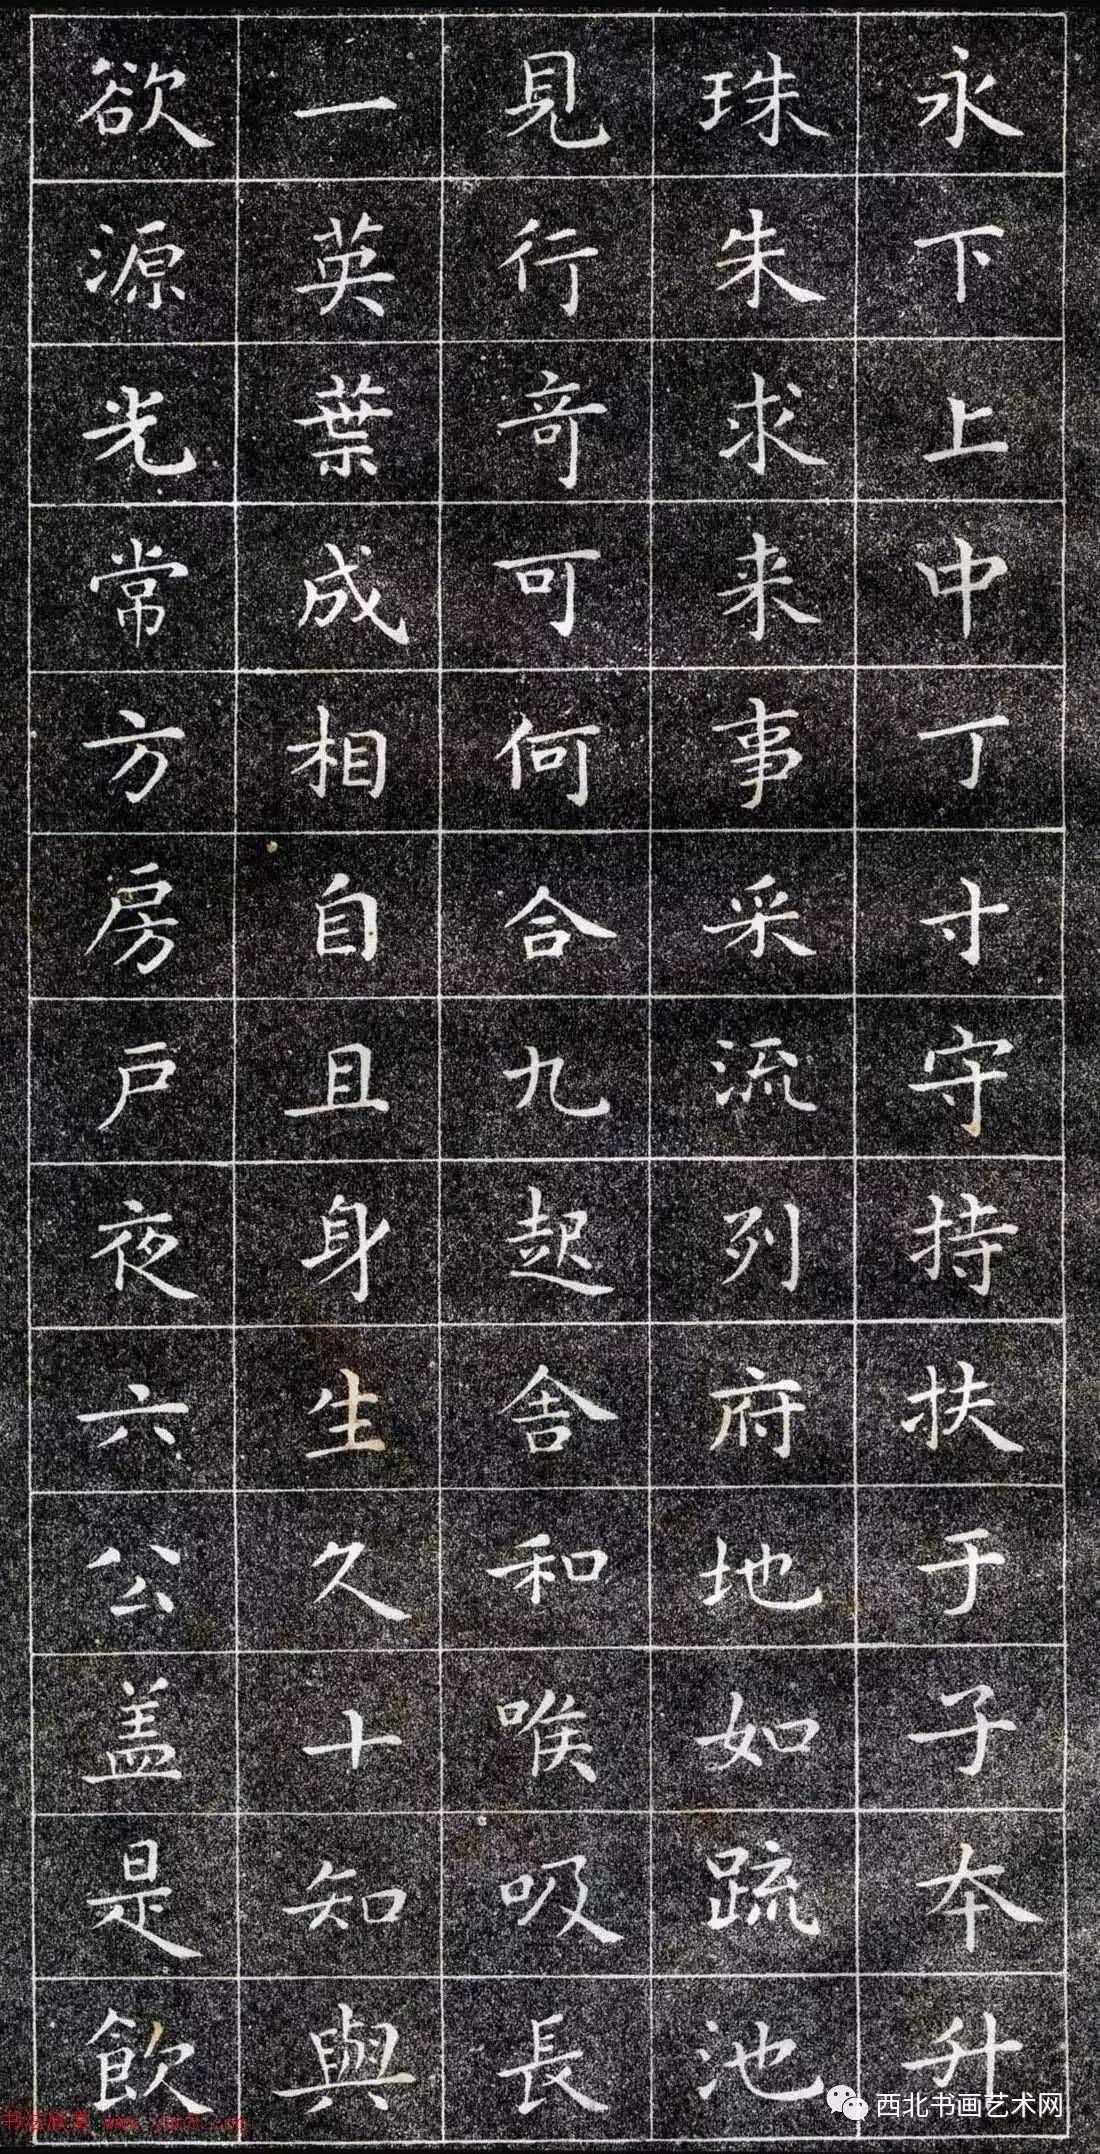 永下上中丁寸守持扶于子本升
珠朱求来事采流列府地如疏池
見行奇可何合九起舎和喉吸長
一英葉成相自且身生久十知與
欲源光常方房戶夜六公盖是飲
西北书画艺术网